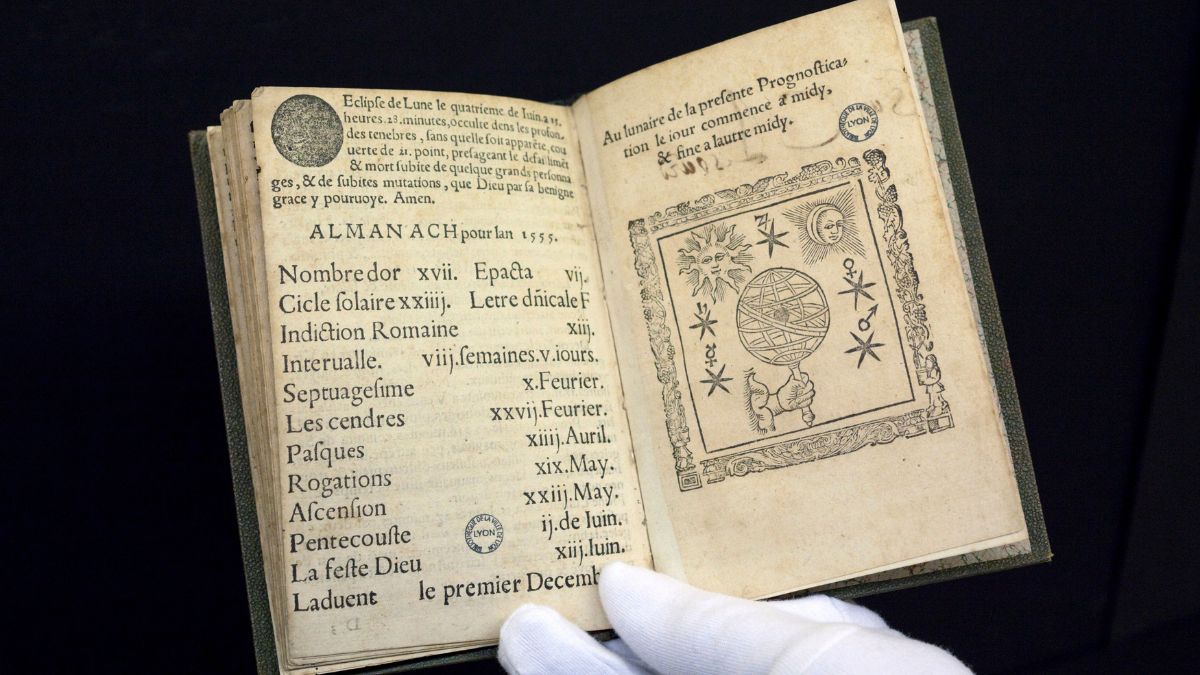 Eclipſe de Lune le quatrieme de Iuin.a 15.
heures.28.minutes,occulte dens les profon-
des tenebres, ſans quelle ſoit apparẽte, cou
uerte de 21. point, preſageant le defaillimẽt
& mort subite de quelque grands perſonna
ges, & de ſubites mutations, que Dieu par ſa benigne
grace y pouruoye. Amen.
ALMANACH pour lan 1555.
Nombre dor xvij. Epacta vij.
Cicle ſolaire xxiiij. Letre dñicale F
Indiction Romaine xiij.
Interualle. viij.ſemaines.v.iours.
Septuageſime x.Feurier.
Les cendres xxvij.Feurier.
Paſques xiiij.Auril.
Rogations xix.May.
Aſcenſion xxiij.May.
Pentecouſte ij.de Iuin.
La feſte Dieu xiij.Iuin.
Laduent le premier Decemb
BIBLIOTHEQUE DE LA VILLE DE LYON
LYON
Au lunaire de la preſente Prognoſtica-
tion le iour commence a midy,
& fine a lautre midy.
BIBLIOTHEQUE DE LA VILLE DE LYON
LYON